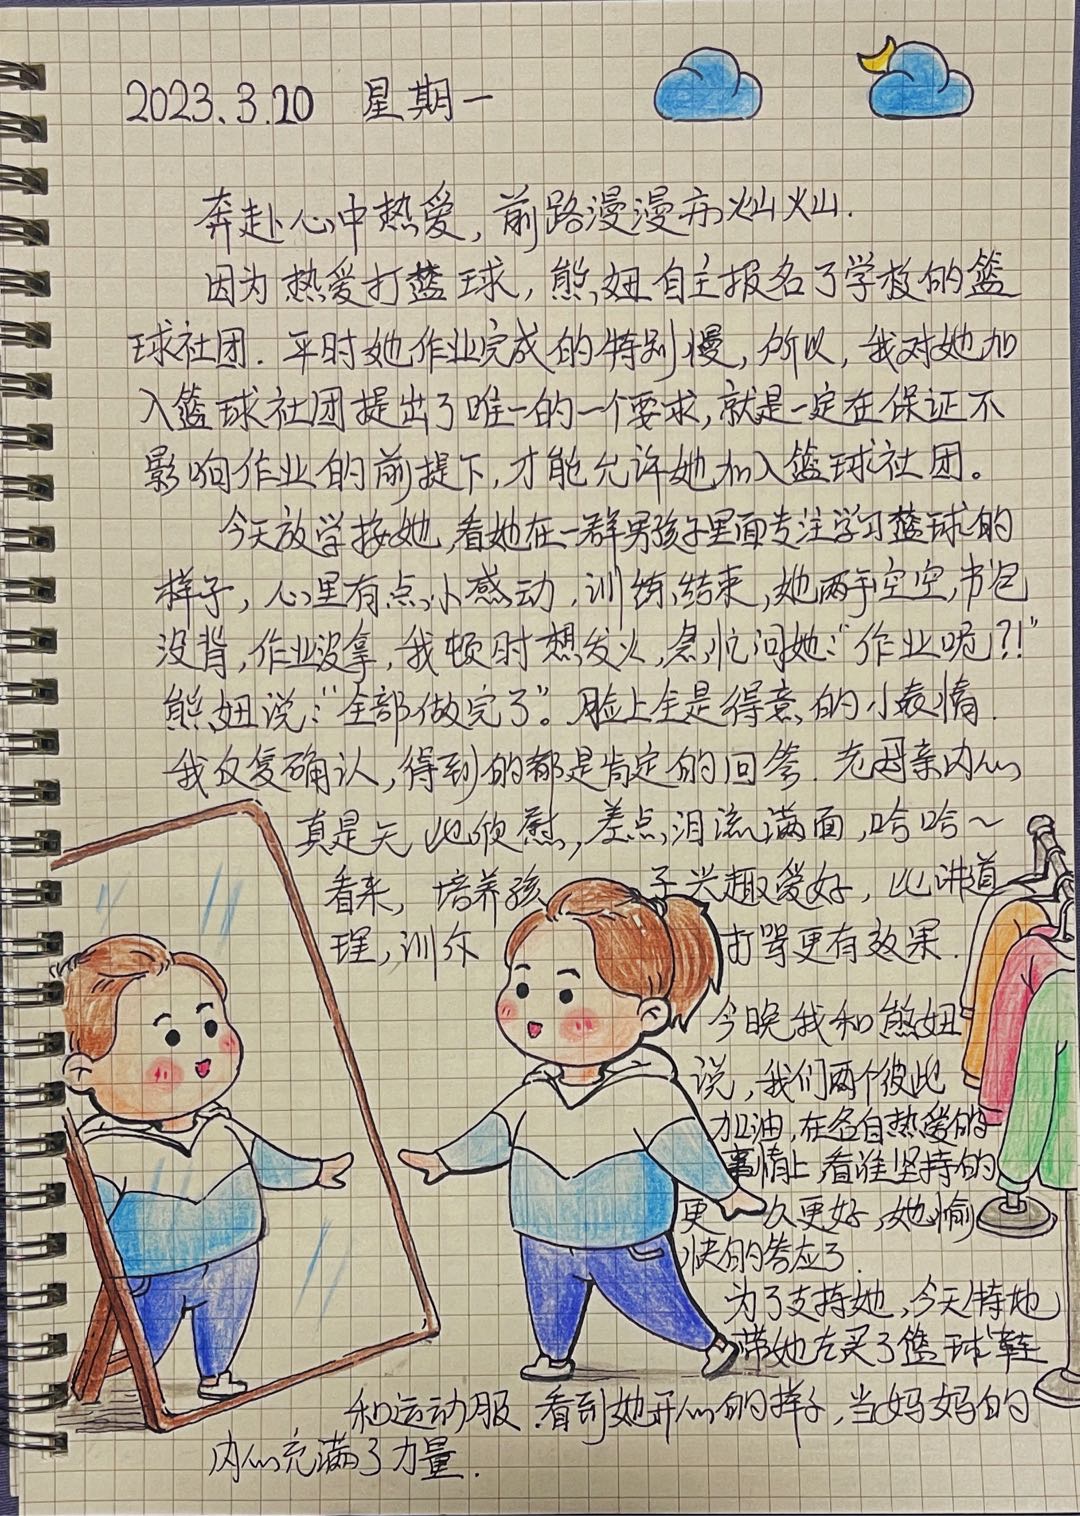 2023.3.20 星期一
奔赴心中热爱，前路漫漫亦灿灿.
因为热爱打篮球，熊妞自主报名了学校的篮
球社团.平时她作业完成的特别慢，所以，我对她加
入篮球社团提出了唯一的一个要求，就是一定在保证不
影响作业的前提下，才能允许她加入篮球社团。
今天放学接她，看她在一群男孩子里面专注学习篮球的
样子，心里有点小感动.训练结束，她两手空空，书包
没背，作业没拿，我顿时想发火，急忙问她：“作业呢？！”
熊妞说：“全部做完了”。脸上全是得意的小表情.
我反复确认，得到的都是肯定的回答.老母亲内心
真是无比欣慰，差点泪流满面，哈哈～
看来，培养孩子兴趣爱好，比讲道
理，训斥打骂更有效果.
今晚我和熊妞
说，我们两个彼此
加油，在各自热爱的
事情上，看谁坚持的
更久更好，她愉
快的答应了.
为了支持她，今天特地
带她去买了篮球鞋
和运动服.看到她开心的样子，当妈妈的
内心充满了力量.